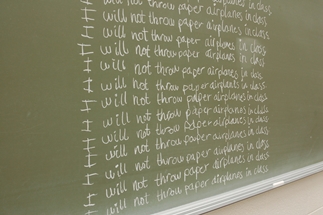 I will not throw paper airplanes in class
I will not throw paper airplanes in class
I will not throw paper airplanes in class
I will not throw paper airplanes in class
I will not throw paper airplanes in class
I will not throw paper airplanes in class
I will not throw paper airplanes in class
I will not throw paper airplanes in class
I will not throw paper airplanes in class
I will not throw paper airplanes in class
I will not throw paper airplanes in class
I will not throw paper airplanes in class
I will not throw paper airplanes in class
I will not throw paper airplanes in class